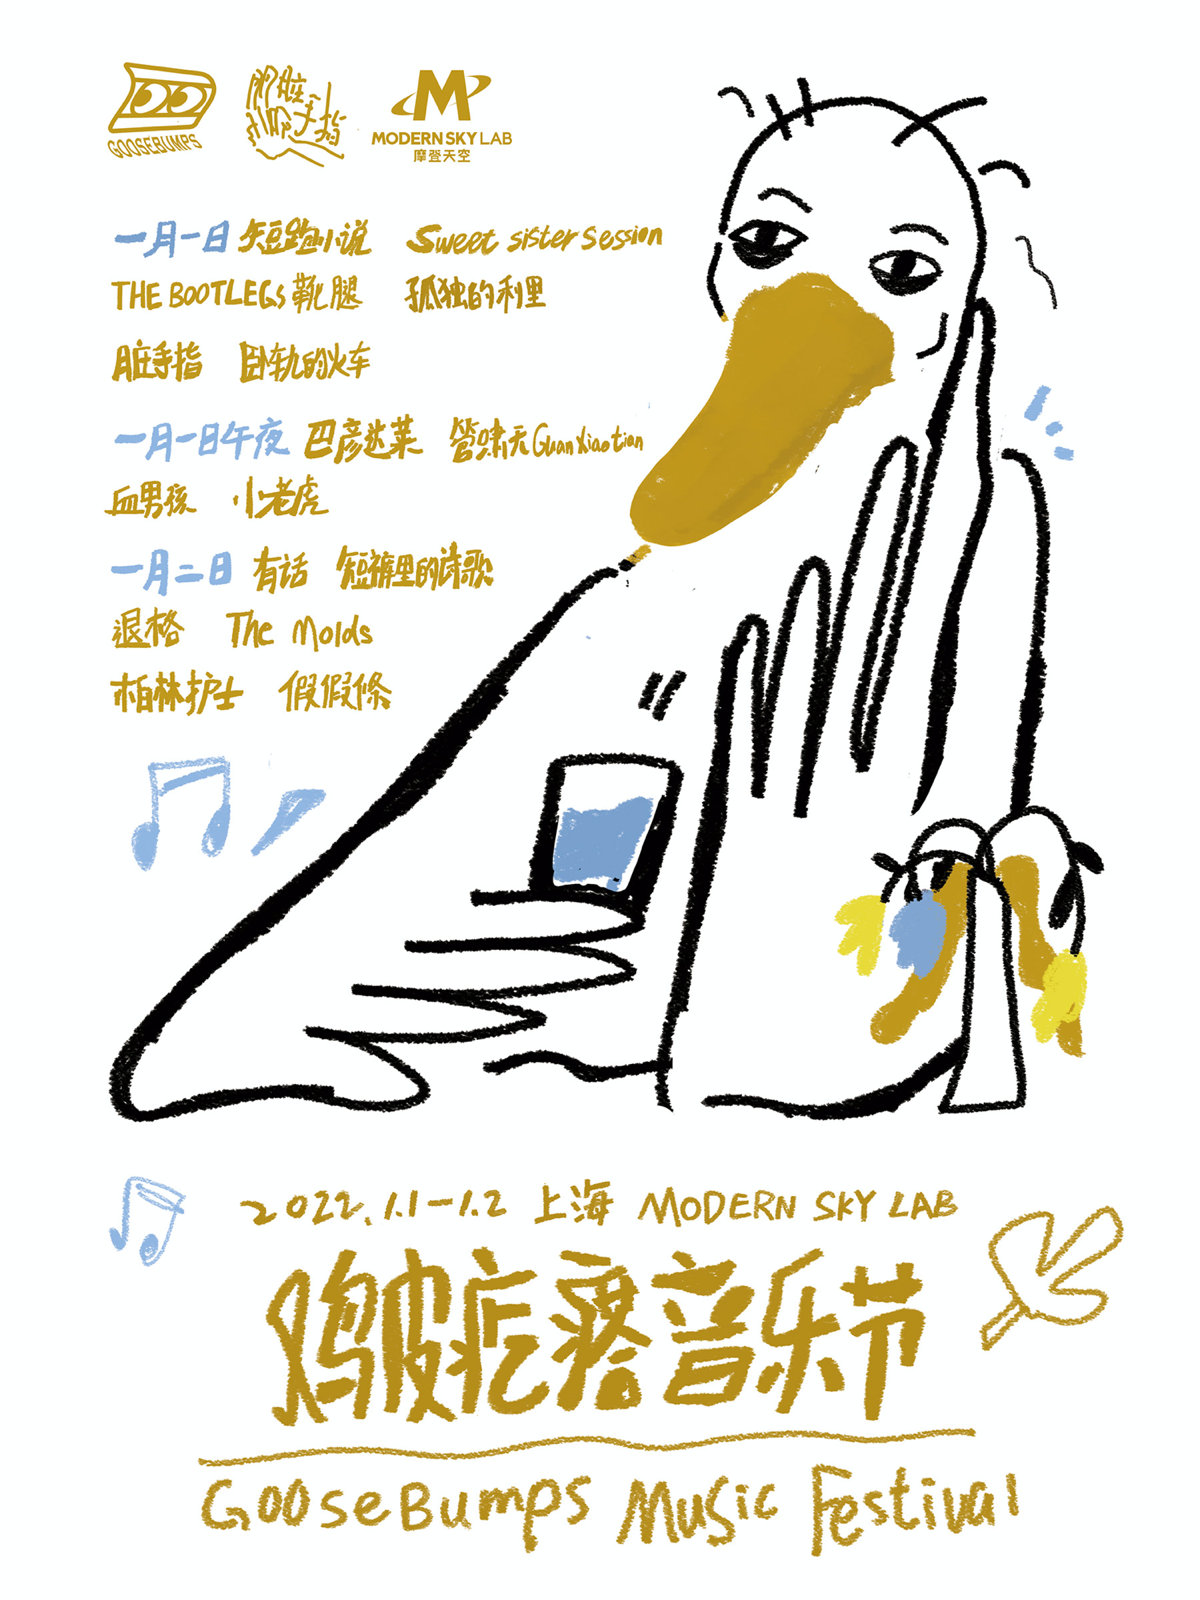 GOOSEBUMPS
脏手指
MODERN SKY LAB
摩登天空
一月一日 短跑小说 Sweet sister session
THE BOOTLEGS 靴腿 孤独的利里
脏手指 卧轨的火车
一月一日午夜 巴彦达莱 管啸天 Guan Xiao tian
血男孩 小老虎
一月二日 有话 短裤里的诗歌
退格 The Molds
柏林护士 假假條
2022.1.1-1.2 上海 MODERN SKY LAB
鸡皮疙瘩音乐节
GooseBumps Music Festival